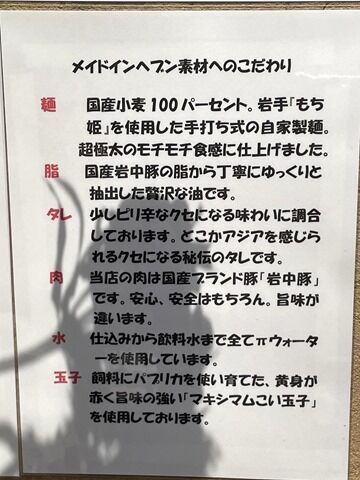 メイドインヘブン素材へのこだわり
麺 国産小麦100パーセント。岩手「もち
姫」を使用した手打ち式の自家製麺。
超極太のモチモチ食感に仕上げました。
脂 国産岩中豚の脂から丁寧にゆっくりと
抽出した贅沢な油です。
タレ 少しピリ辛なクセになる味わいに調合
しております。どこかアジアを感じら
れるクセになる秘伝のタレです。
肉 当店の肉は国産ブランド豚「岩中豚」
です。安心、安全はもちろん。旨味が
違います。
水 仕込みから飲料水まで全てπウォータ
ーを使用しています。
玉子 飼料にパプリカを使い育てた、黄身が
赤く旨味の強い「マキシマムこい玉子」
を使用しております。